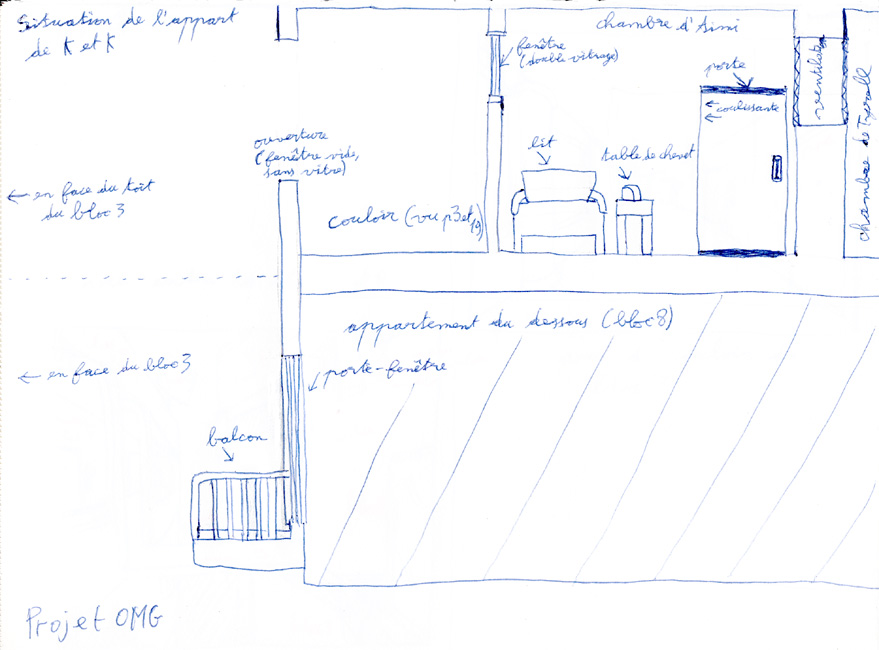 Situation de l'appart
de K et K
chambre d'Aimi
fenêtre
(double vitrage)
porte
← coulissante
←
ventilat°
chambre de Tyroll
ouverture
(fenêtre vide,
sans vitre)
lit
table de chevet
← en face du toit
du bloc 3
couloir (vu p3 et
19)
appartement du dessous (bloc 8)
← en face du bloc 3
porte-fenêtre
balcon
Projet OMG